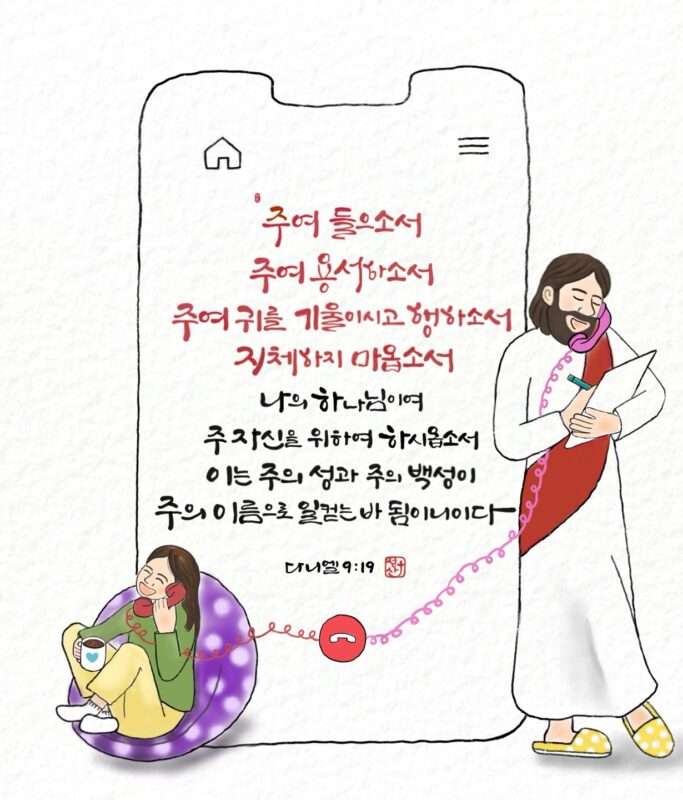 주여 들으소서
주여 용서하소서
주여 귀를 기울이시고 행하소서
지체하지 마옵소서
나의 하나님이여
주 자신을 위하여 하시옵소서
이는 주의 성과 주의 백성이
주의 이름으로 일컫는 바 됨이니이다
다니엘 9:19